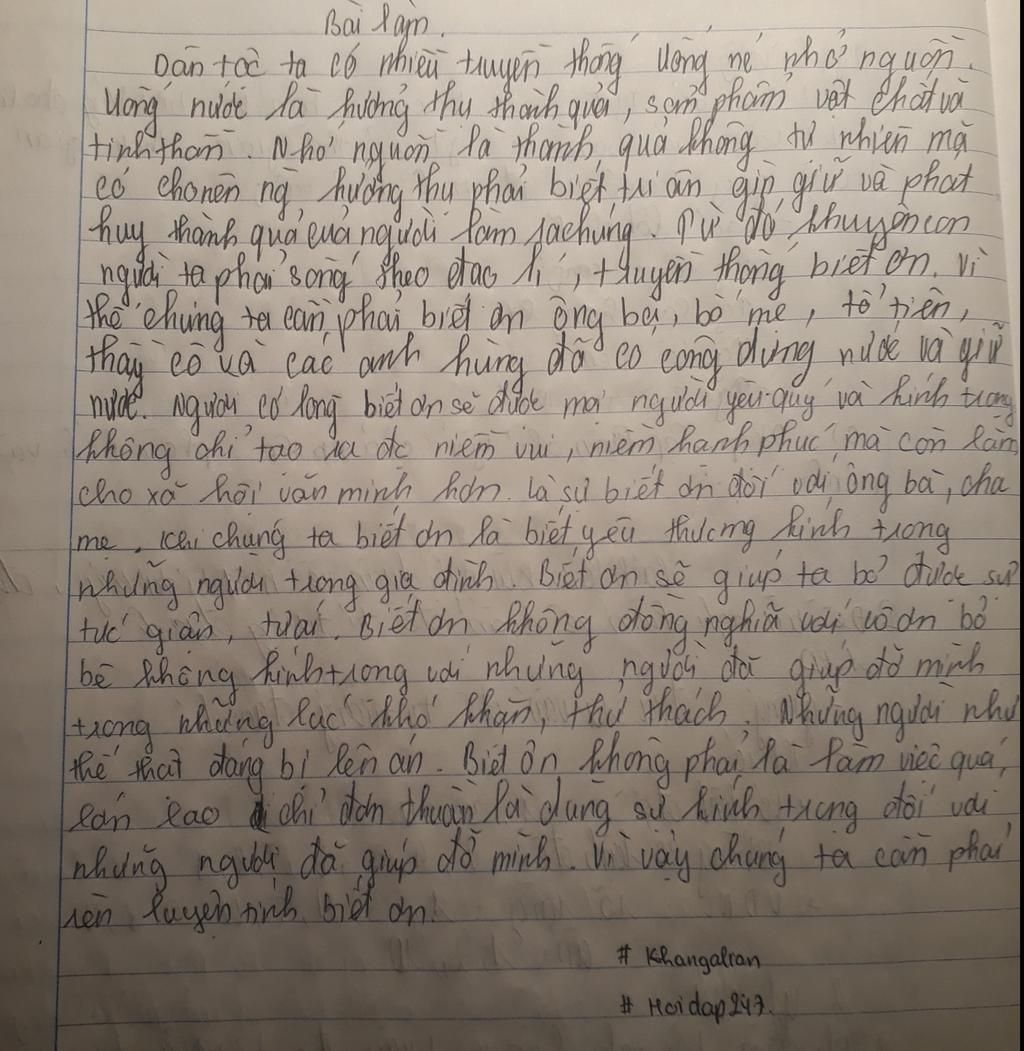 Bài làm.
Dân tộc ta có nhiều truyền thống uống nc nhớ nguồn.
Uống nước là hưởng thụ thành quả, sản phẩm vật chất và
tinh thần. Nhớ nguồn là thành quả không tự nhiên mà
có cho nên ng hưởng thụ phải biết tri ân gìn giữ và phát
huy thành quả của người làm ra chúng. Từ đó khuyên con
người ta phải sống theo đạo lí, truyền thống biết ơn. Vì
thế chúng ta cần phải biết ơn ông bà, bố mẹ, tổ tiên,
thầy cô và các anh hùng đã có công dựng nước và giữ
nước. Người có lòng biết ơn sẽ được mọi người yêu quý và kính trọng
không chỉ tạo ra đc niềm vui, niềm hạnh phúc mà còn làm
cho xã hội văn minh hơn. Là sự biết ơn đối với ông bà, cha
mẹ. Khi chúng ta biết ơn là biết yêu thương kính trọng
những người trong gia đình. Biết ơn sẽ giúp ta bỏ được sự
tức giận, tự ái. Biết ơn không đồng nghĩa với vô ơn bỏ
bê không kính trọng với những người đã giúp đỡ mình
trong những lúc khó khăn, thử thách. Những người như
thế thật đáng bị lên án. Biết ơn không phải là làm việc quá
lớn lao chỉ đơn thuần là dùng sự kính trọng đối với
những người đã giúp đỡ mình. Vì vậy chúng ta cần phải
rèn luyện tính biết ơn.
# Khangalran
# Hoidap247.